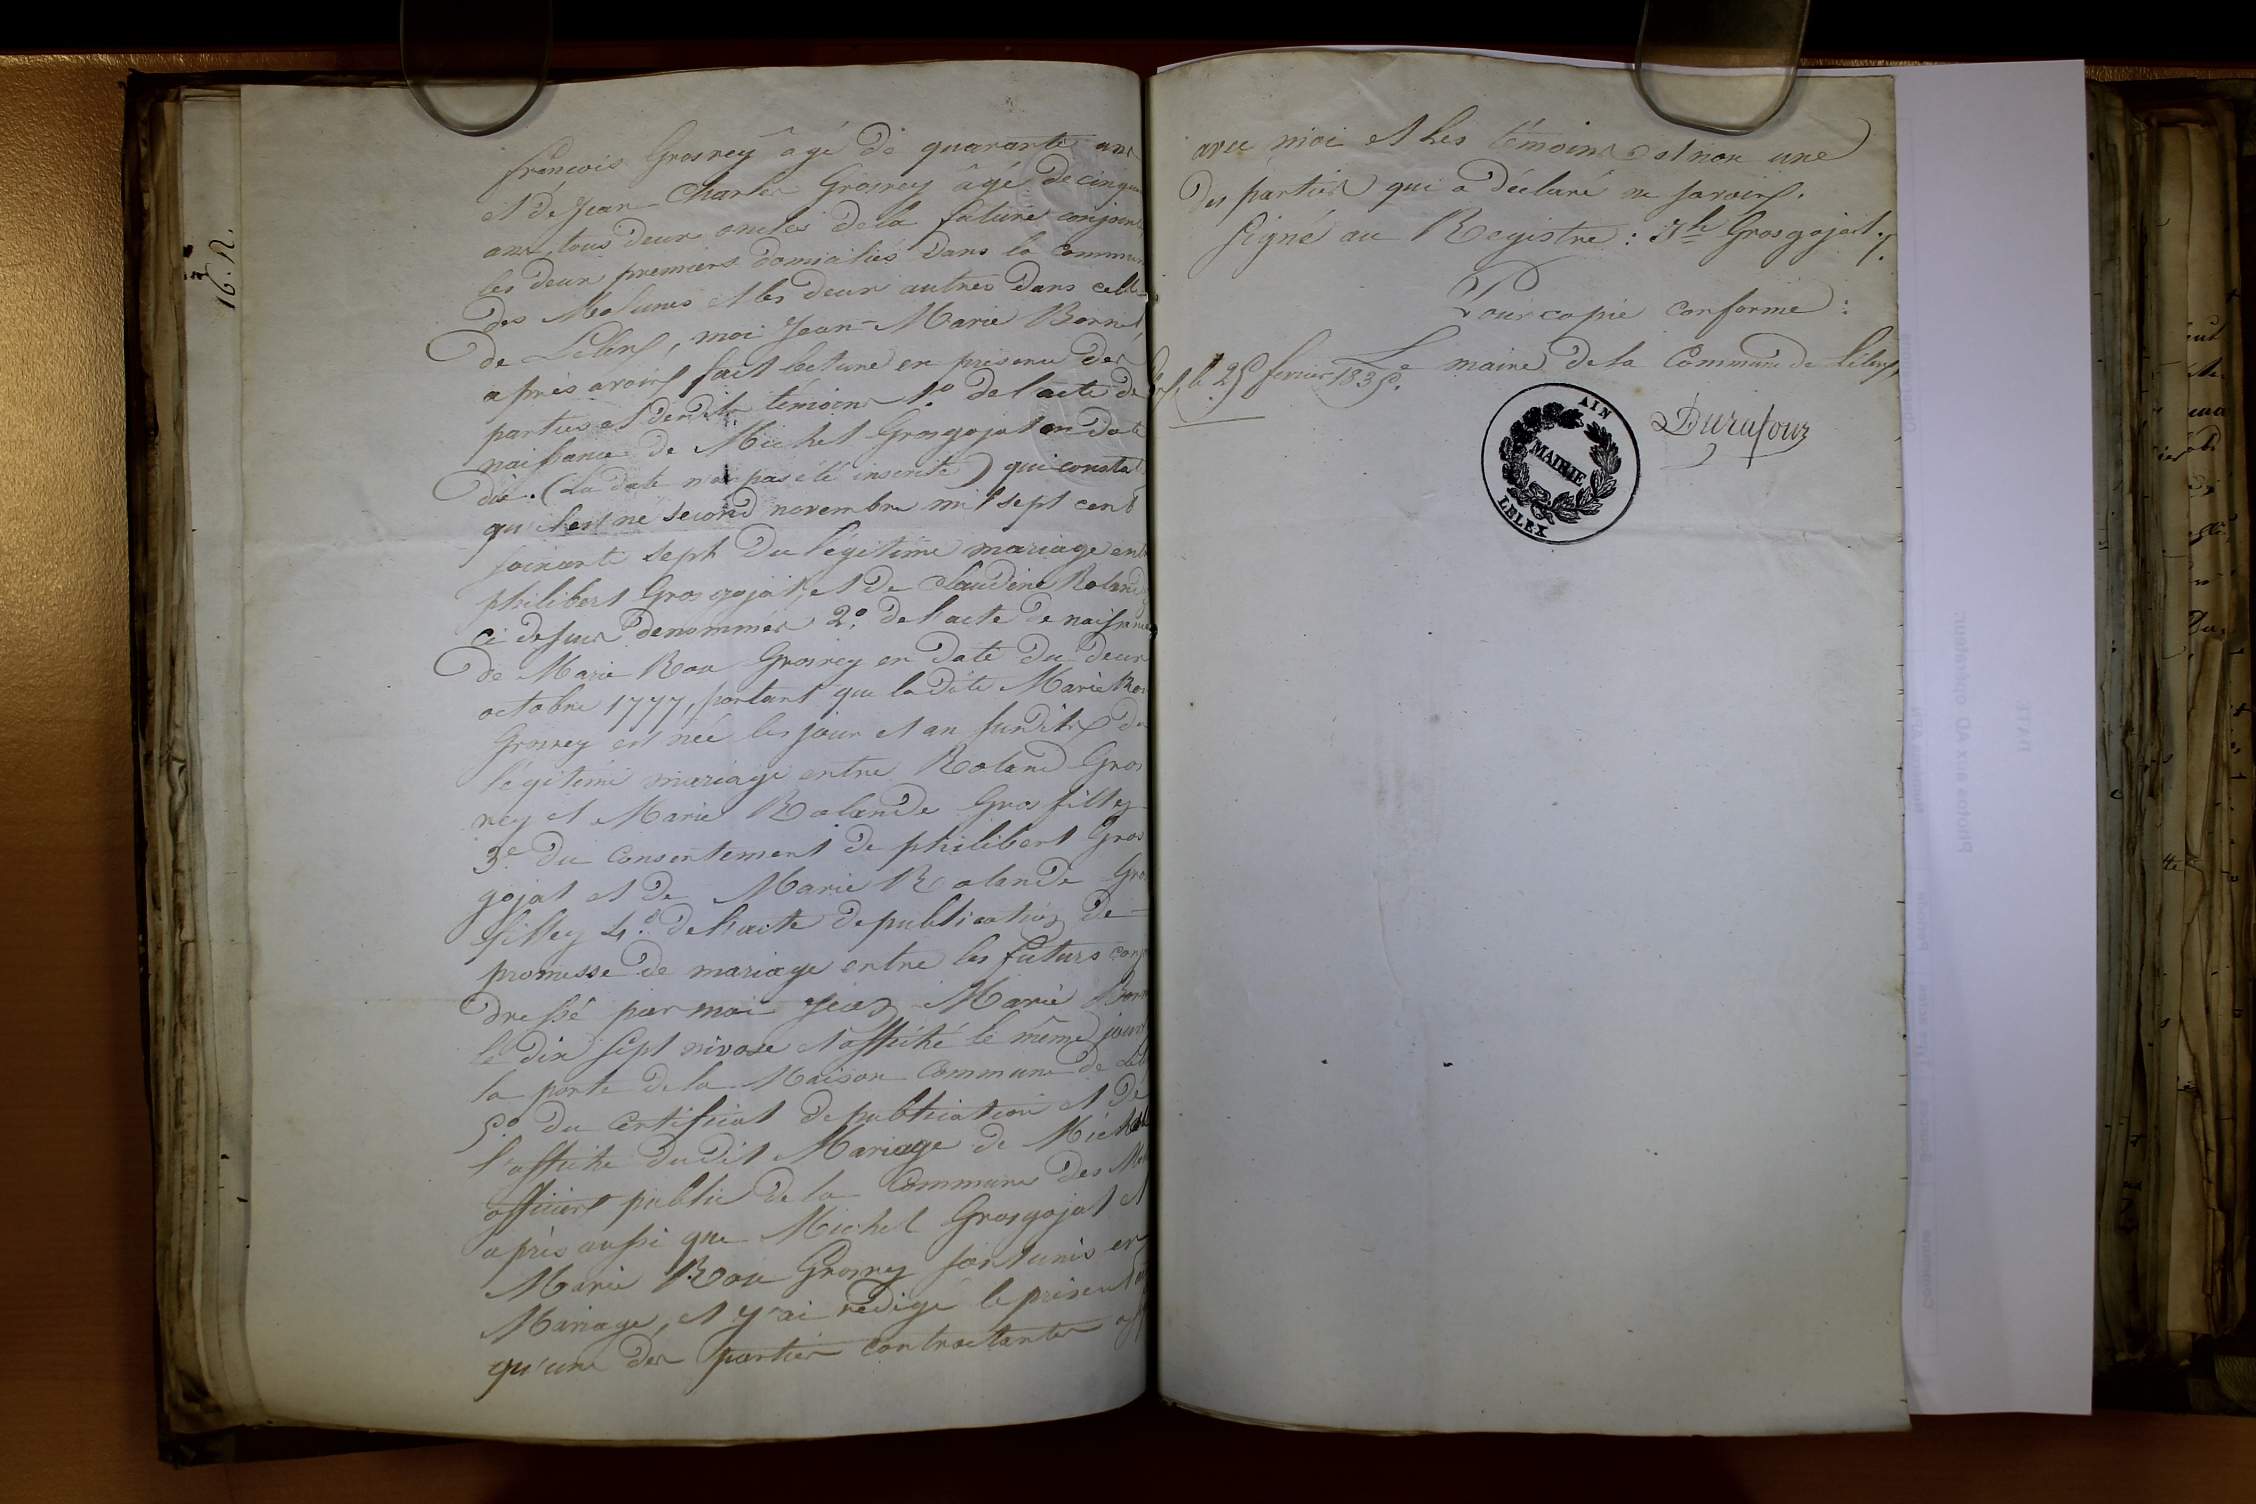 16. R.
françois Grosrey âgé de quarante ans
et de Jean-Charles Grosrey âgé de cinqua
ans, tous deux oncles de la future conjointe
les deux premiers domiciliés dans la Commun
des Molunes et les deux autres dans celle
de Lelex, moi Jean-Marie Bornet,
après avoir fait lecture en présence des
parties et desdits témoins 1.º de l'acte de
naissance de Michel Grosgojat en date
du. (La date n'a pas été inscrite) qui constat
qu'il est né second novembre mil sept cent
soixante sept du légitime mariage entr
philibert Grosgojat, et de Claudine Roland
ci dessus dénommés 2.º de l'acte de naissance
de Marie Rose Grosrey en date du deux
octobre 1777, portant que la dite Marie Ros
Grosrey est née les jour et an susdits du
légitime mariage entre Roland Gros
rey et Marie Rolande Grosfilley
3.º du Consentement de philibert Gros
gojat et de Marie Rolande Gros
filley 4.º de l'acte de publication de
promesse de mariage entre les futurs conj
dressé par moi Jean Marie Born
le dix sept nivose et affiché le même jour
la porte de la Maison Commune de Lel
5.º du Certificat de publication et de
l'affiche dudit Mariage de Michel
officier public de la Commune des Mol
après aussi que Michel Grosgojat et
Marie Rose Grosrey sont unis en
Mariage, et j'ai rédigé le présent
qu'une des parties contractantes
avec moi et les témoins et non une
des parties qui a déclaré ne savoir.
Signé au Registre: Grosgojat
Pour copie conforme:
le 25 fevrier 1835. Le maire de la Commune de Lelex,
Durafour
AIN
MAIRIE
LELEX